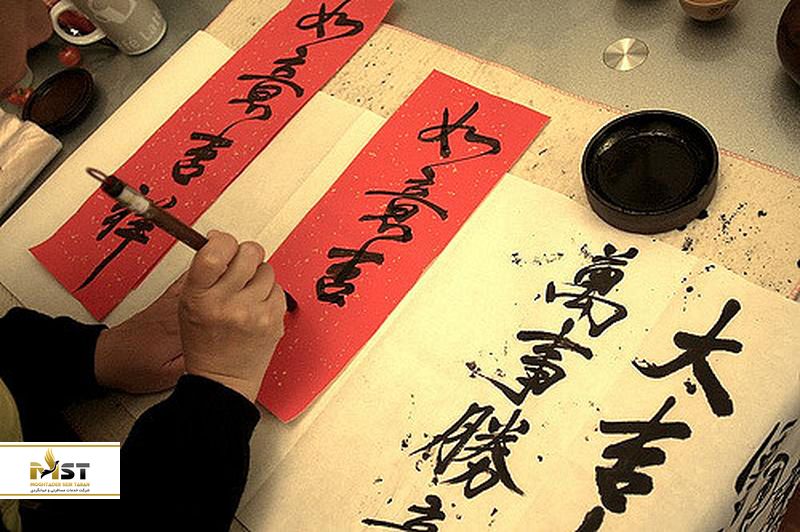 大吉
萬事勝
如意吉
如意吉祥
MST
MOGHTADER SEIR TABAN
شرکت خدمات مسافرتی و جهانگردی